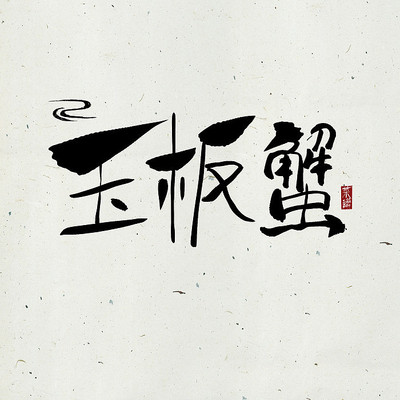 玉板蟹